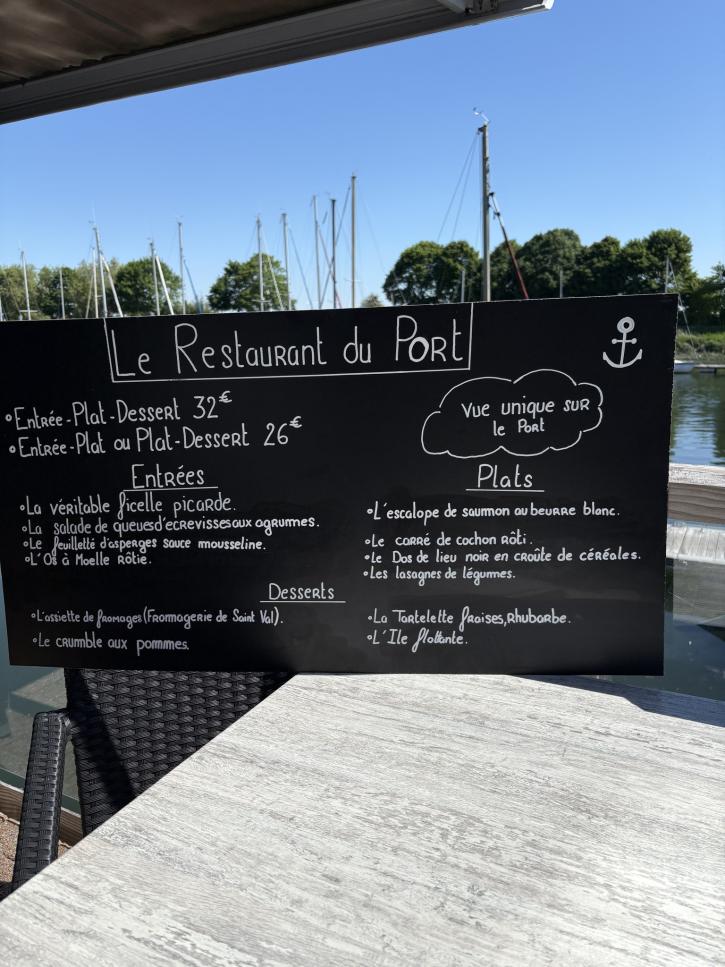 Le Restaurant du Port
Entrée-Plat-Dessert 32€
Entrée-Plat ou Plat-Dessert 26€
Vue unique sur
le Port
Entrées
La véritable ficelle picarde.
La salade de queues d'écrevisses aux agrumes.
Le feuilleté d'asperges sauce mousseline.
L'Os à Moelle Rôtie.
Plats
L'escalope de saumon au beurre blanc.
Le carré de cochon rôti.
Le Dos de lieu noir en croûte de céréales.
Les lasagnes de légumes.
Desserts
L'assiette de fromages (Fromagerie de Saint Val).
Le crumble aux pommes.
La Tartelette fraises, Rhubarbe.
L'Ile flottante.